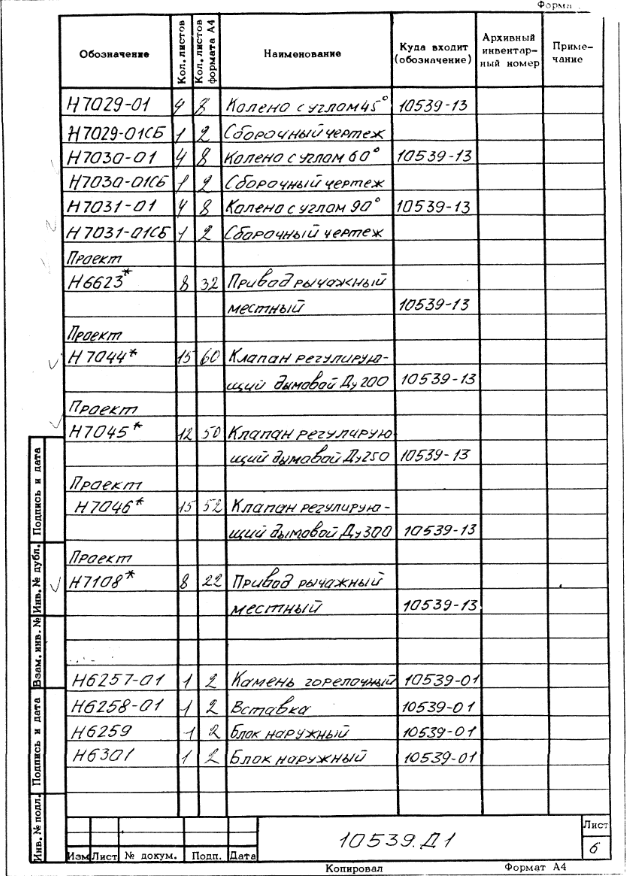 Форма
Обозначение Кол. листов Кол. листов формата А4 Наименование Куда входит (обозначение) Архивный инвентарный номер Примечание
Н7029-01 4 8 Колено с углом 45° 10539-13
Н7029-01СБ 1 2 Сборочный чертеж
Н7030-01 4 8 Колено с углом 60° 10539-13
Н7030-01СБ 1 2 Сборочный чертеж
Н7031-01 4 8 Колено с углом 90° 10539-13
Н7031-01СБ 1 2 Сборочный чертеж
Проект
Н6623* 8 32 Привод рычажный
местный 10539-13
Проект
Н7044* 15 60 Клапан регулирую-
щий дымовой Ду200 10539-13
Проект
Н7045* 12 50 Клапан регулирую
щий дымовой Ду250 10539-13
Проект
Н7046* 15 52 Клапан регулирую-
щий дымовой Ду300 10539-13
Проект
Н7108* 8 22 Привод рычажный
местный 10539-13
Н6257-01 1 2 Камень горелочный 10539-01
Н6258-01 1 2 Вставка 10539-01
Н6259 1 2 Блок наружный 10539-01
Н6301 1 2 Блок наружный 10539-01
Подпись и дата
Инв. № дубл.
Взам. инв. №
Подпись и дата
Инв. № подл.
10539.Д1
Лист
6
Изм Лист № докум. Подп. Дата
Копировал Формат А4